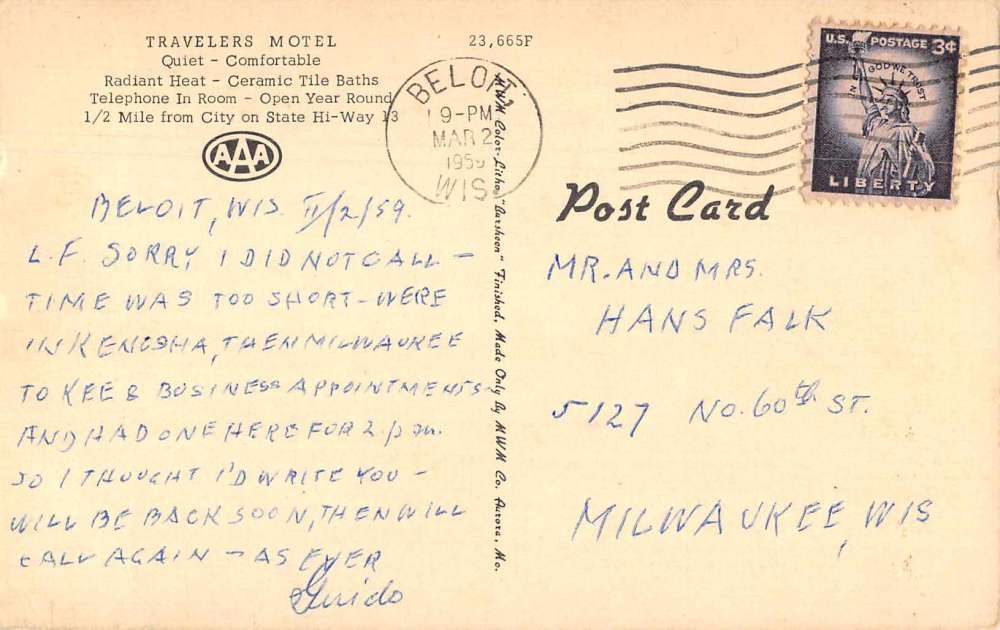 TRAVELERS MOTEL
Quiet - Comfortable
Radiant Heat - Ceramic Tile Baths
Telephone In Room - Open Year Round
1/2 Mile from City on State Hi-Way 13
AAA
23,665F
BELOIT
9-PM
MAR 2
1959
WIS.
U.S. POSTAGE 3¢
IN GOD WE TRUST
LIBERTY
BELOIT, WIS. II/2/59.
L.F. SORRY I DID NOT CALL –
TIME WAS TOO SHORT – WERE
IN KENOSHA, THEN MILWAUKEE
TO KEEP BUSINESS APPOINTMENTS –
AND HAD ONE HERE FOR 2 pm.
SO I THOUGHT I'D WRITE YOU –
WILL BE BACK SOON, THEN WILL
CALL AGAIN – AS EVER
Guido
MWM Color-Litho "Aursheen" Finished, Made Only By MWM Co. Aurora, Mo.
Post Card
MR. AND MRS.
HANS FALK
5127 NO. 60th ST.
MILWAUKEE, WIS